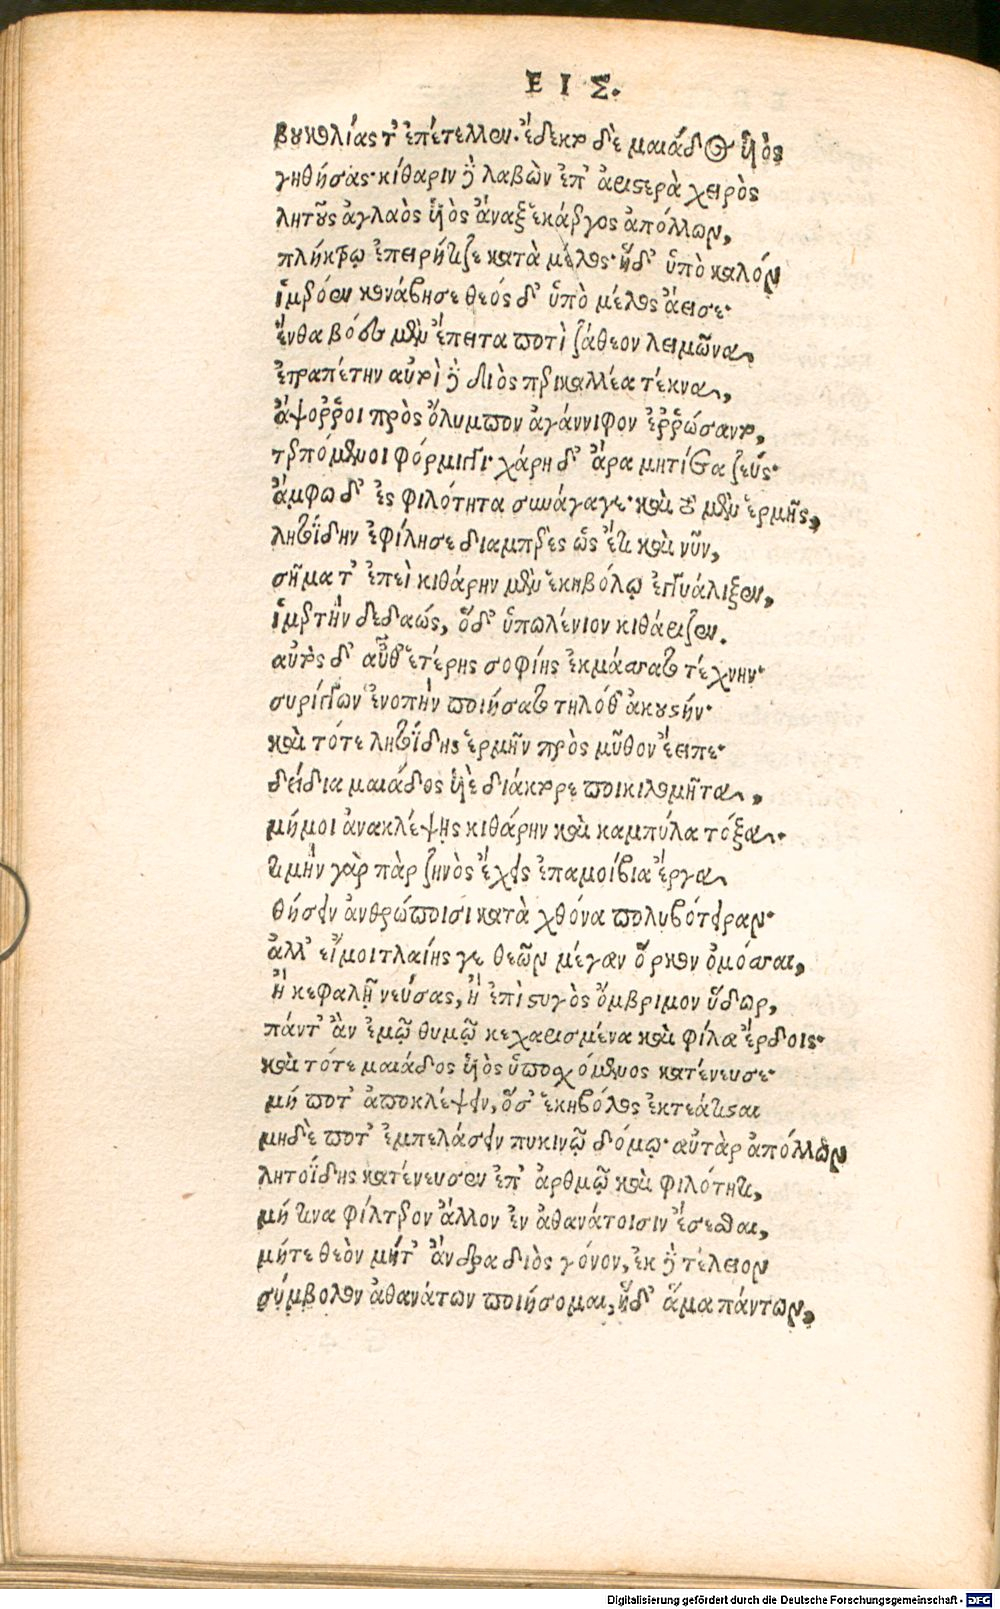 ΕΙΣ.
βουκολίας τ' ἐπέτελλεν. ἔδεκτο δὲ μαιάδος υἱὸς
γηθήσας· κίθαριν δὲ λαβὼν ἐπ' ἀριστερὰ χειρὸς
λητοῦς ἀγλαὸς υἱὸς ἄναξ ἑκάεργος ἀπόλλων,
πλήκτρῳ ἐπειρήτιζε κατὰ μέλος· ἡ δ' ὑπὸ καλόν
ἱμερόεν κονάβησε θεός δ' ὑπὸ μέλος ἄεισε·
ἔνθα βόες μὲν ἔπειτα ποτὶ ζάθεον λειμῶνα,
ἐτραπέτην αὐτοὶ δὲ διὸς περικαλλέα τέκνα,
ἄψορῥοι πρὸς ὄλυμπον ἀγάννιφον ἐῤῥώσαντο,
τερπόμενοι φόρμιγγι· χάρη δ' ἄρα μητίετα ζεύς·
ἄμφω δ' ἐς φιλότητα συνάγαγε· καὶ τὸ μὲν ἑρμῆς,
λητοΐδην ἐφίλησε διαμπερὲς ὡς ἔτι καὶ νῦν,
σῆμα τ' ἐπεὶ κιθάρην μὲν ἑκηβόλῳ ἐγγυάλιξεν,
ἱμερτὴν δεδαώς, ὅδ' ὑπωλένιον κιθάριζεν.
αὐτὸς δ' αὖθ' ἑτέρης σοφίης ἐκμάσσατο τέχνην·
συρίγγων ἐνοπὴν ποιήσατο τηλόθ' ἀκουστήν·
καὶ τότε λητοΐδης ἑρμῆν πρὸς μῦθον ἔειπε·
δείδια μαιάδος υἱὲ διάκτορε ποικιλομῆτα,
μή μοι ἀνακλέψῃς κιθάρην καὶ καμπύλα τόξα·
τιμὴν γὰρ πὰρ ζηνὸς ἔχεις ἐπαμοίβια ἔργα
θήσειν ἀνθρώποισι κατὰ χθόνα πολυβότειραν·
ἀλλ' εἴ μοι τλαίης γε θεῶν μέγαν ὅρκον ὀμόσσαι,
ἢ κεφαλῇ νεύσας, ἢ ἐπὶ στυγὸς ὄμβριμον ὕδωρ,
πάντ' ἂν ἐμῷ θυμῷ κεχαρισμένα καὶ φίλα ἔρδοις·
καὶ τότε μαιάδος υἱὸς ὑποσχόμενος κατένευσε·
μή ποτ' ἀποκλέψειν, ὅσ' ἑκηβόλος ἐκτεάτισται
μηδὲ ποτ' ἐμπελάσειν πυκινῷ δόμῳ· αὐτὰρ ἀπόλλων
λητοΐδης κατένευσεν ἐπ' ἀρθμῷ καὶ φιλότητι,
μή τινα φίλτερον ἄλλον ἐν ἀθανάτοισιν ἔσεσθαι,
μήτε θεὸν μήτ' ἄνδρα διὸς γόνον, ἐκ δὲ τέλειον
σύμβολον ἀθανάτων ποιήσομαι, ἠδ' ἅμα πάντων,
Digitalisierung gefördert durch die Deutsche Forschungsgemeinschaft - DFG